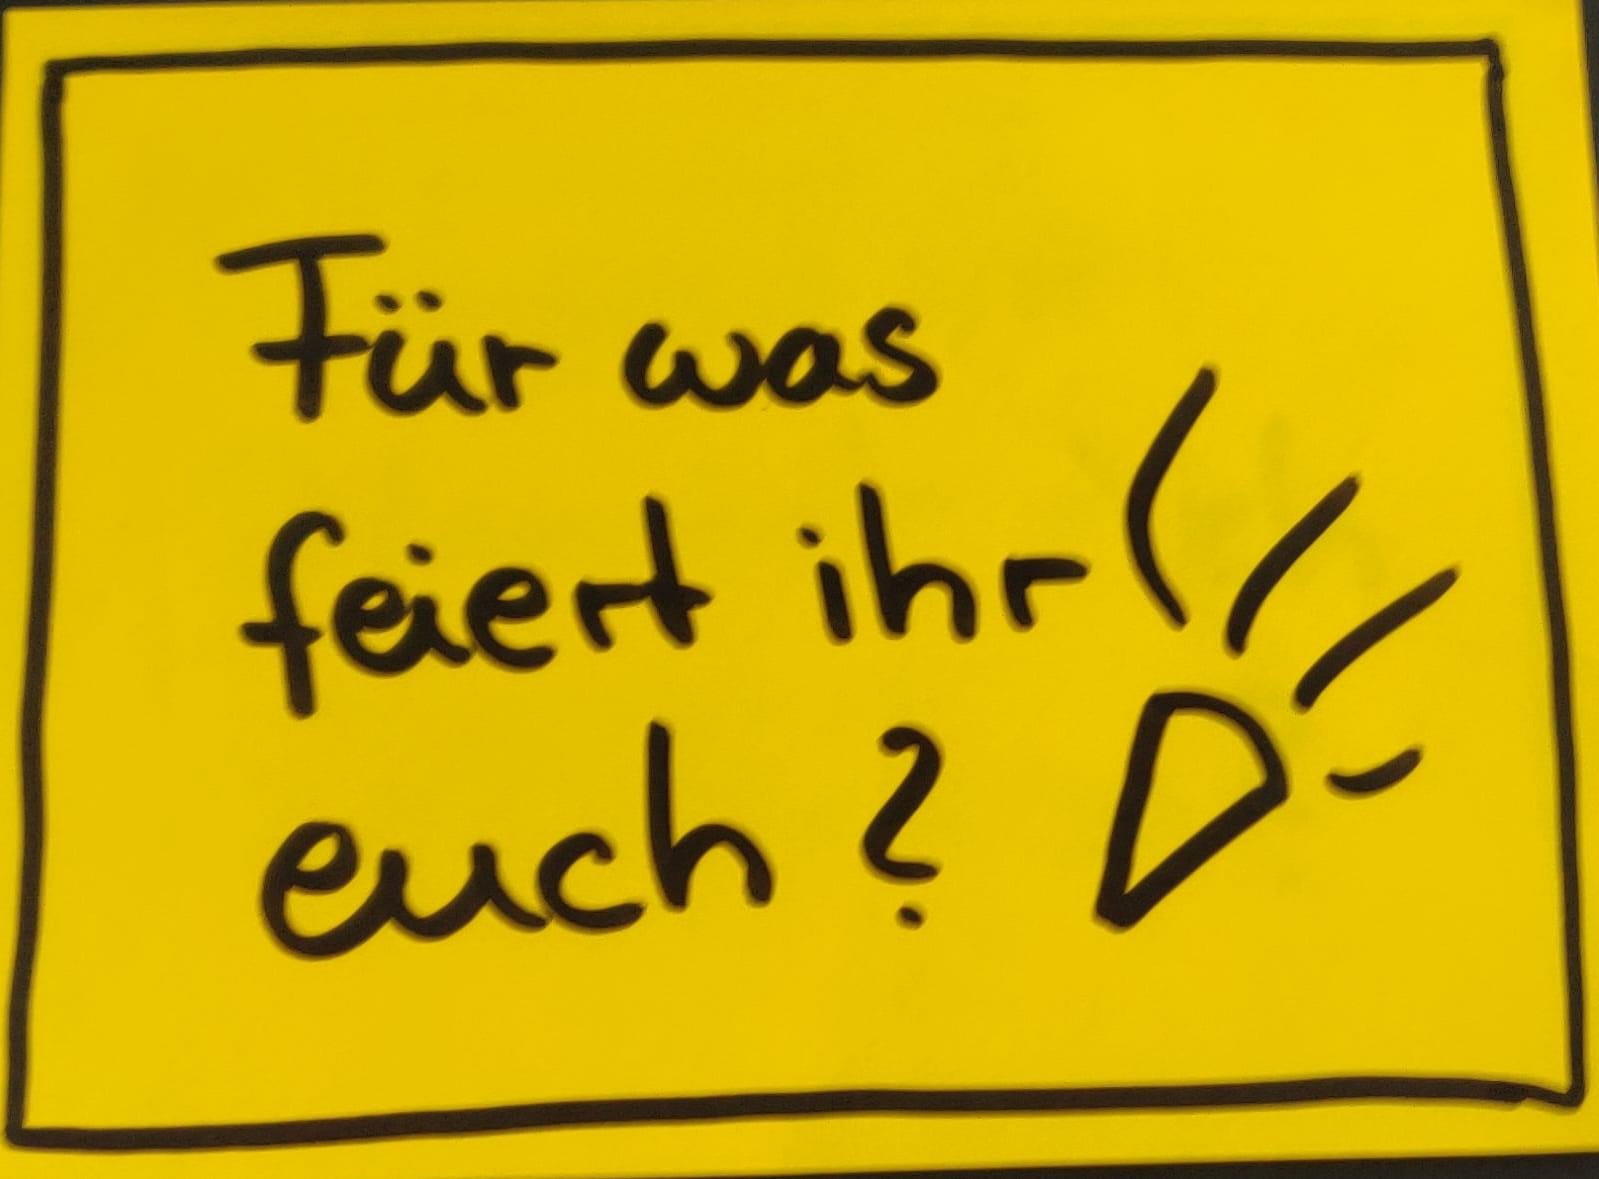 Für was
feiert ihr
euch?